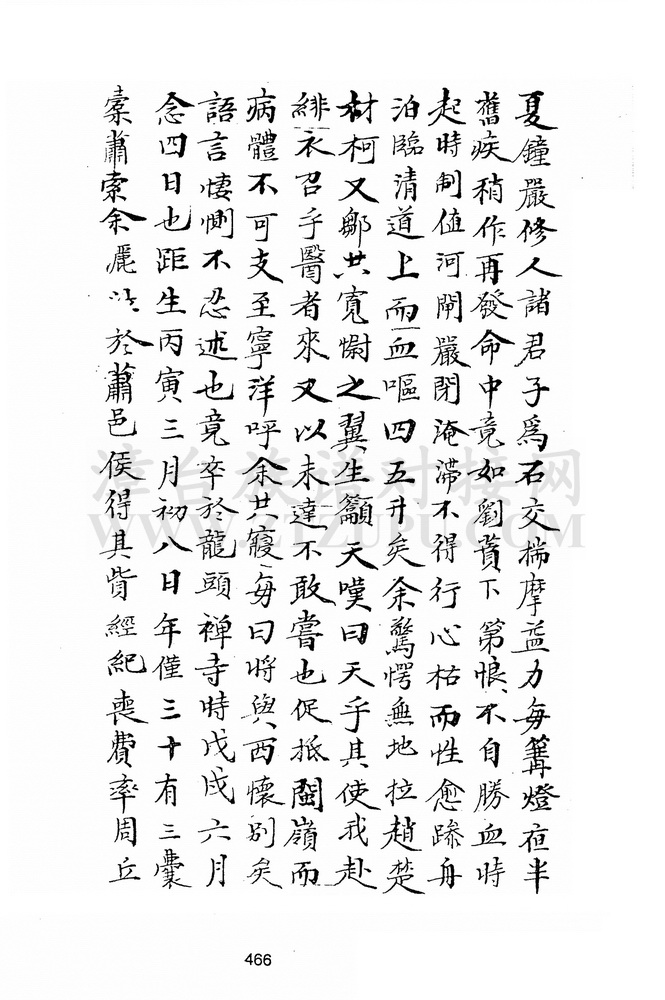 夏鐘嚴修人諸君子爲石交揣摩益力每篝燈夜半
舊疾稍作再發命中竟如劉蕡下第悵不自勝血時
起時制值河閘嚴閉淹滯不得行心枯而性愈躁舟
泊臨清道上而血嘔四五升矣余驚愕無地拉趙楚
材柯又鄒共寬慰之翼生籲天嘆曰天乎其使我赴
緋衣召乎醫者來又以未達不敢嘗也促抵閩嶺而
病體不可支至寧洋呼余共寢每曰將與西懷別矣
語言悽惻不忍述也竟卒於龍頭禅寺時戊戌六月
念四日也距生丙寅三月初八日年僅三十有三囊
橐蕭索余於蕭邑侯得其貲經紀喪費率周丘
466
漳台族谱对接网
WWW.ZTZUPU.COM